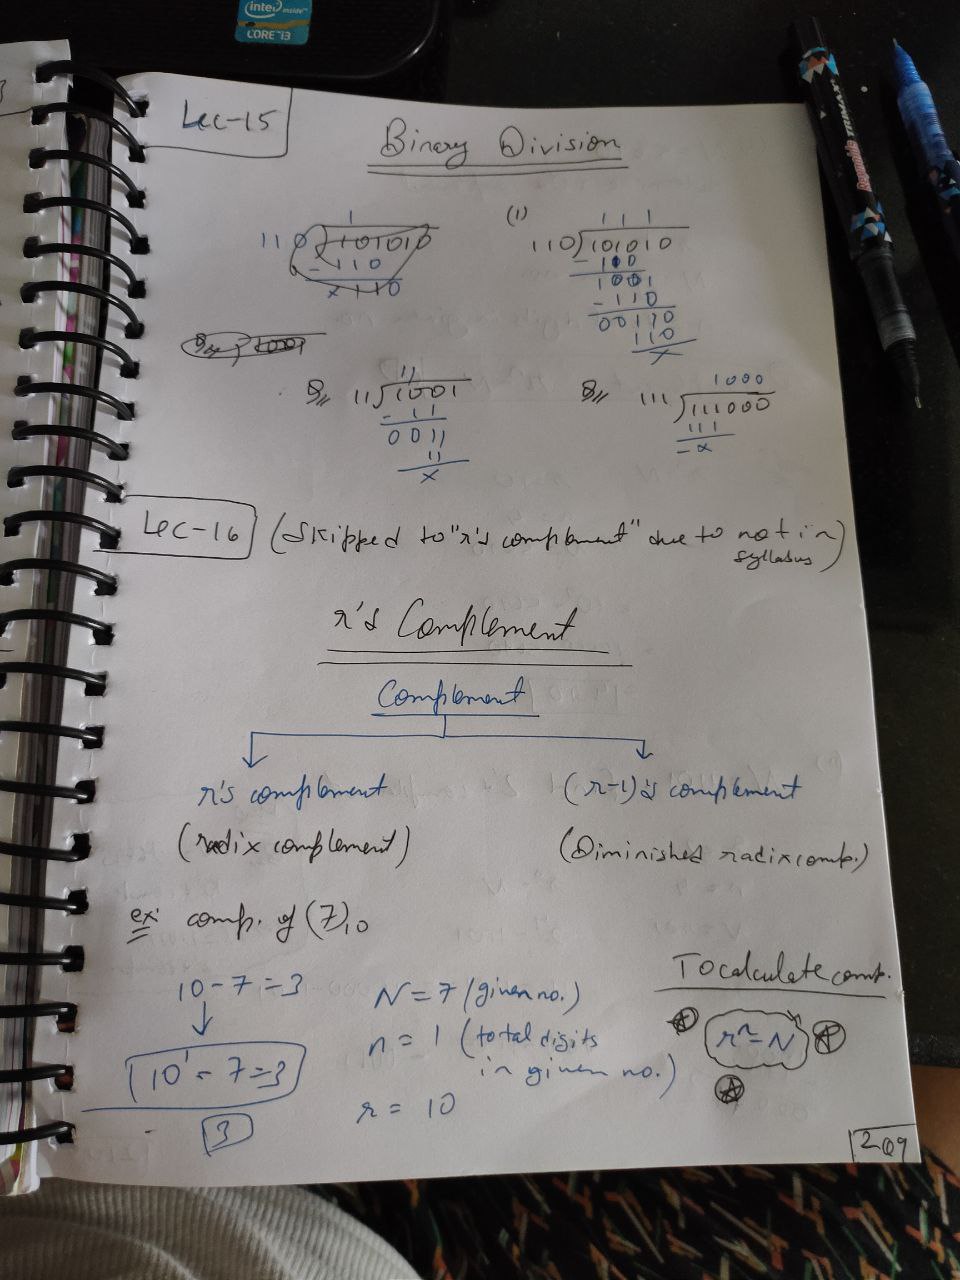 intel inside™
CORE™ i3
Lec-15
Binary Division
1
110 101010
- 110
x 110
(1)
111
110)101010
- 110
1001
- 110
00110
110
x
Q,,
11
11)1001
- 11
0011
11
x
Q,,
1000
111)111000
111
- x
Lec-16 (Skipped to "r's complement" due to not in
syllabus)
r's Complement
Complement
r's complement (r-1)'s complement
(radix complement) (Diminished radix comp.)
ex: comp. of (7)10
10 - 7 = 3
10¹ - 7 = 3
3
N = 7 (given no.)
n = 1 (total digits
in given no.)
r = 10
To calculate comp.
rⁿ - N
209
Reynolds TRIMAX